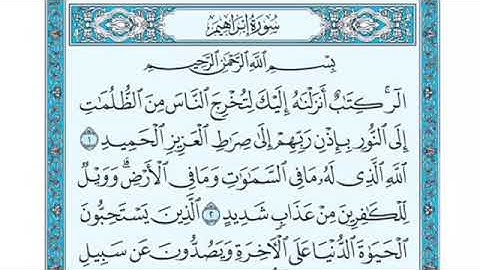 سُورَةُ إِبْرَاهِيمَ
بِسْمِ اللَّهِ الرَّحْمَٰنِ الرَّحِيمِ
الٓر ۚ كِتَٰبٌ أَنزَلْنَٰهُ إِلَيْكَ لِتُخْرِجَ النَّاسَ مِنَ الظُّلُمَٰتِ
إِلَى النُّورِ بِإِذْنِ رَبِّهِمْ إِلَىٰ صِرَٰطِ الْعَزِيزِ الْحَمِيدِ ١
اللَّهِ الَّذِي لَهُۥ مَا فِي السَّمَٰوَٰتِ وَمَا فِي الْأَرْضِ ۗ وَوَيْلٌ
لِّلْكَٰفِرِينَ مِنْ عَذَابٍ شَدِيدٍ ٢ الَّذِينَ يَسْتَحِبُّونَ
الْحَيَوٰةَ الدُّنْيَا عَلَى الْآخِرَةِ وَيَصُدُّونَ عَن سَبِيلِ